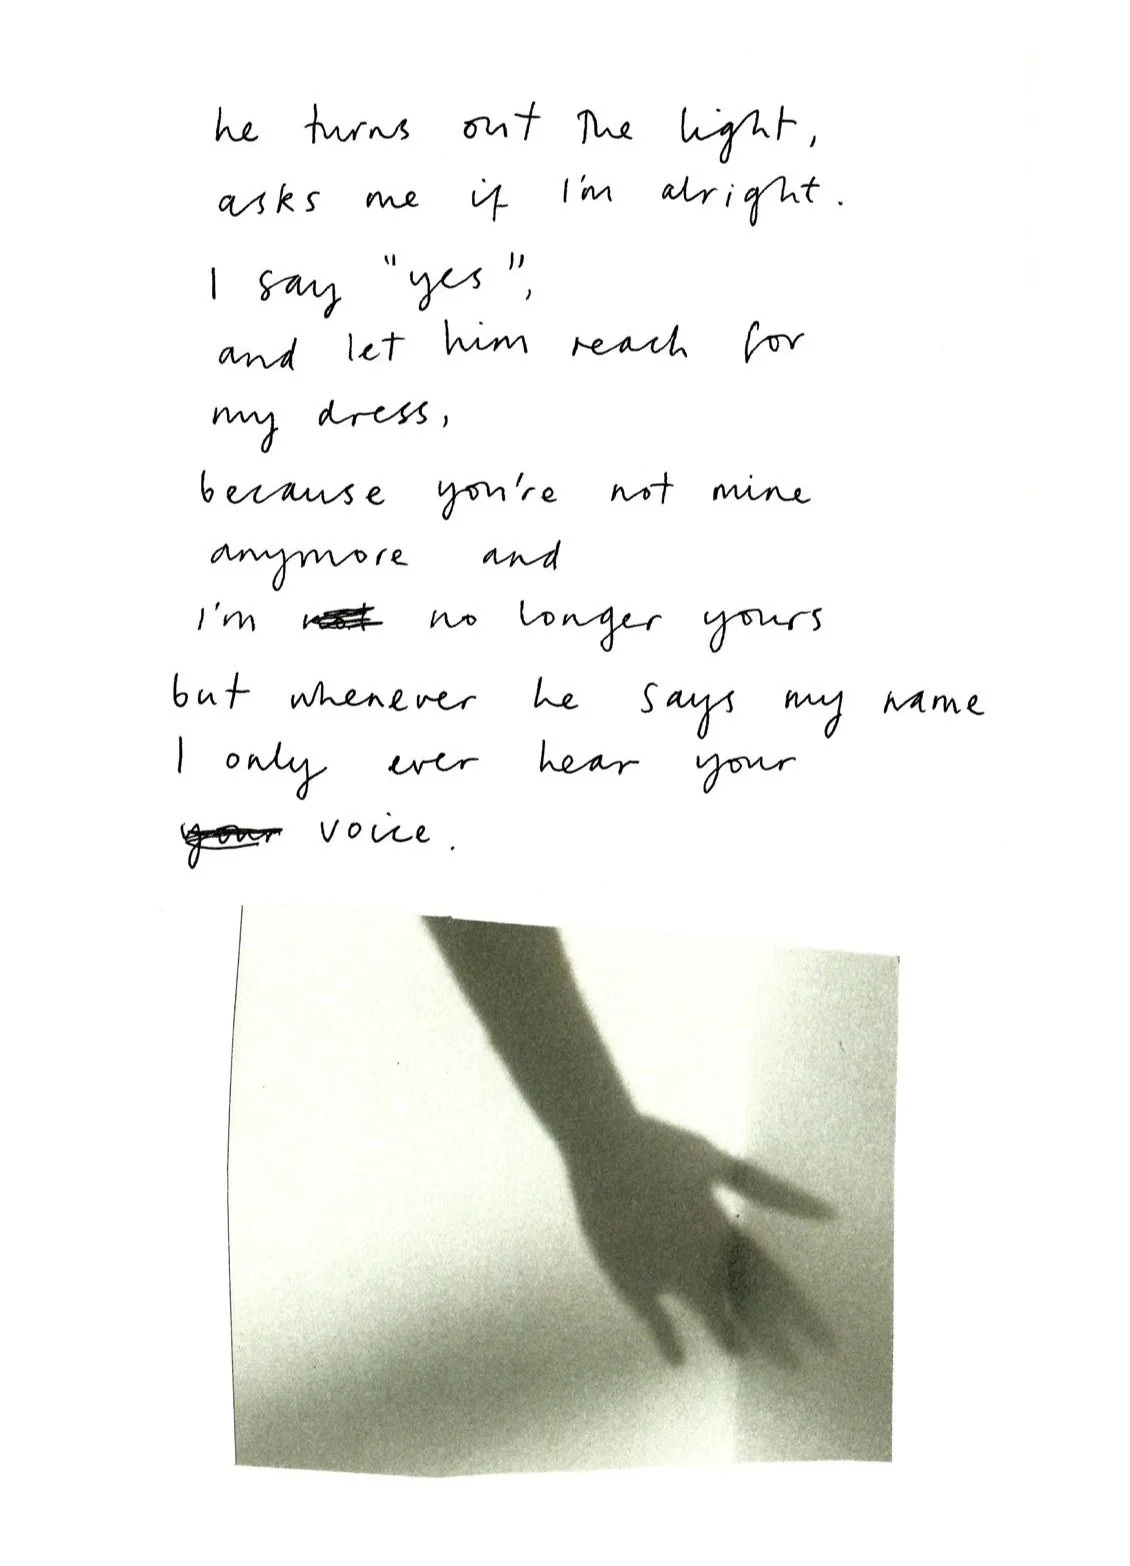 he turns out the light,
asks me if I'm alright.
I say "yes",
and let him reach for
my dress,
because you're not mine
anymore and
I'm not no longer yours
but whenever he says my name
I only ever hear your
your voice.